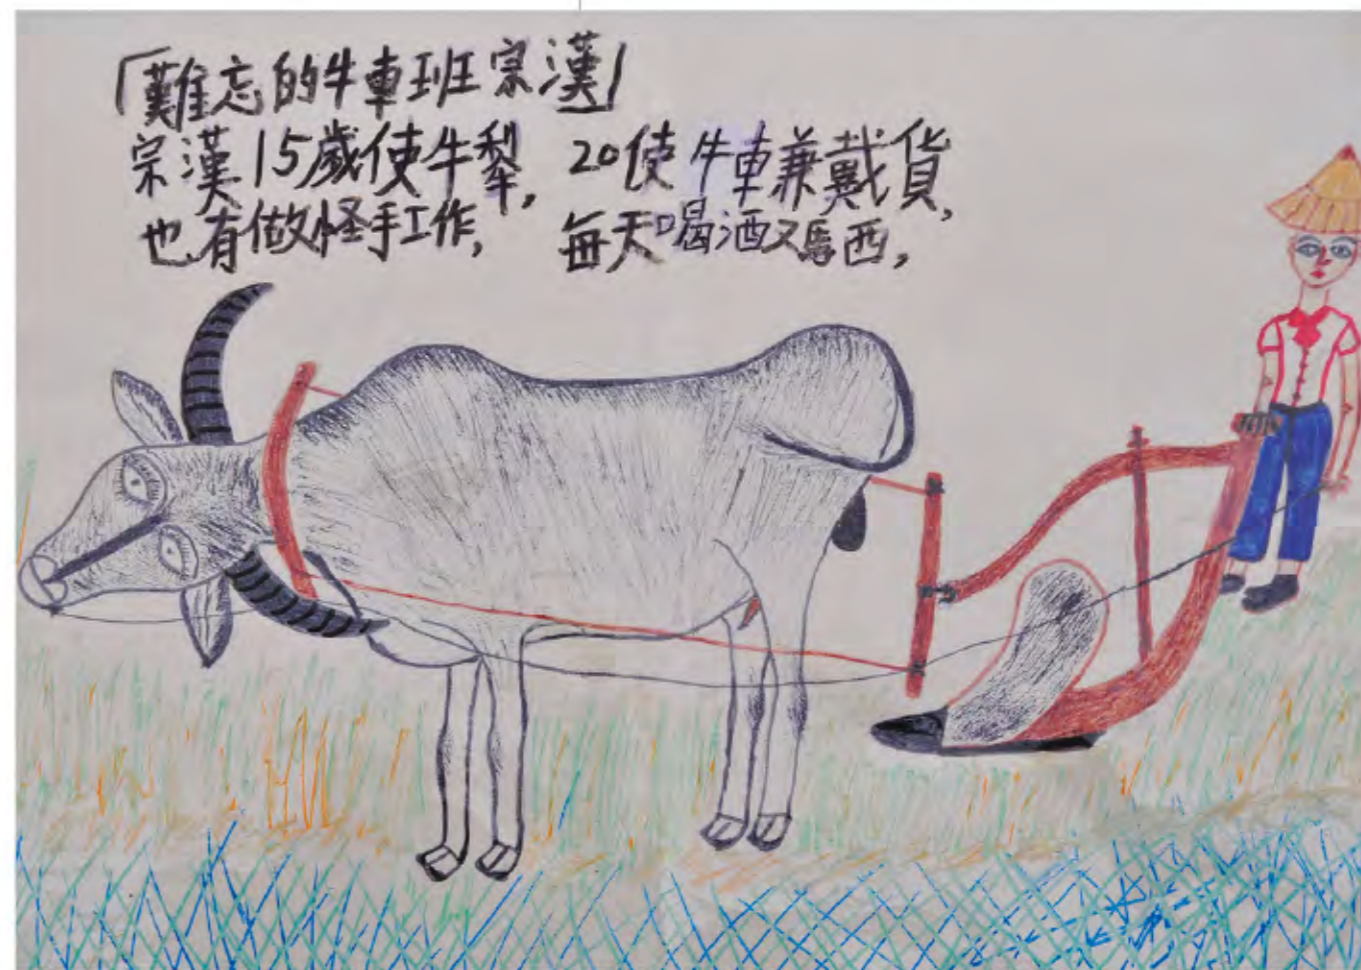 「難忘的牛車班宗漢」
宗漢15歲使牛犁, 20使牛車兼戴貨,
也有做怪手工作, 每天喝酒又馬西,